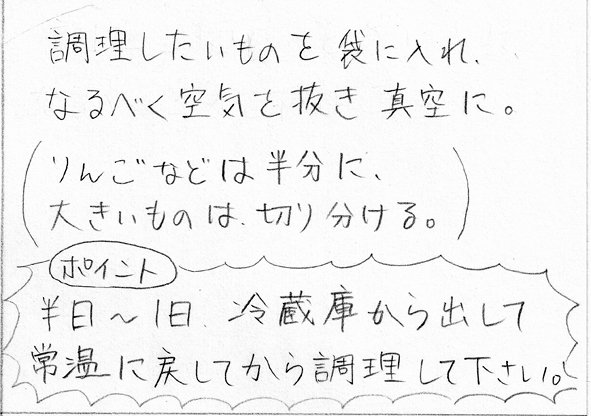 調理したいものを袋に入れ、
なるべく空気を抜き真空に。
(りんごなどは半分に、
大きいものは、切り分ける。)
ポイント
半日〜1日、冷蔵庫から出して
常温に戻してから調理して下さい。